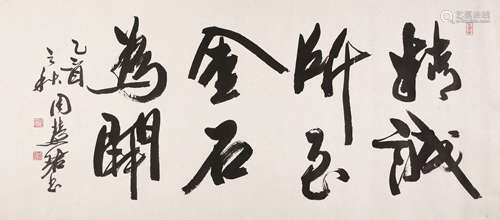 精誠
所至
金石
為開
乙酉
之秋周慧珺書